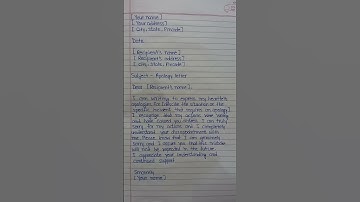 [ Your name ]
[ Your address ]
[ City, State, Pincode ]
Date
[ Recipient's name ]
[ Recipient's address ]
[ City, State, Pincode ]
Subject - Apology letter
Dear [Recipient's name],
I am writing to express my heartfelt
apologies for [describe the situation or the
specific incident that requires an apology].
I recognize that my actions were wrong
and have caused you distress. I am truly
sorry for my actions and I completely
understand your disappointment with
me. Please know that I am genuinely
sorry and I assure you that this mistake
will not be repeated in the future.
I appreciate your understanding and
continued support.
Sincerely
[Your name]